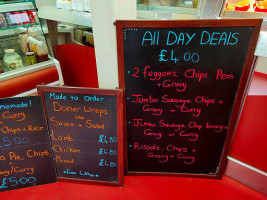 Curry
Chips + Rice
5.00
Pie, Chips
Curry
£5.00
Made to Order
Doner Wraps
Sauce + Salad
Lamb £4.00
Chicken £4.00
Mixed £4.00
All DAY DEALS
£4.00
2 faggons, Chips, Peas
+ Gravy
Jumbo Sausage, Chips +
Gravy or Curry
Jumbo Sausage, Chip buoy +
Gravy or Curry
Rissole, Chips +
Gravy or Curry